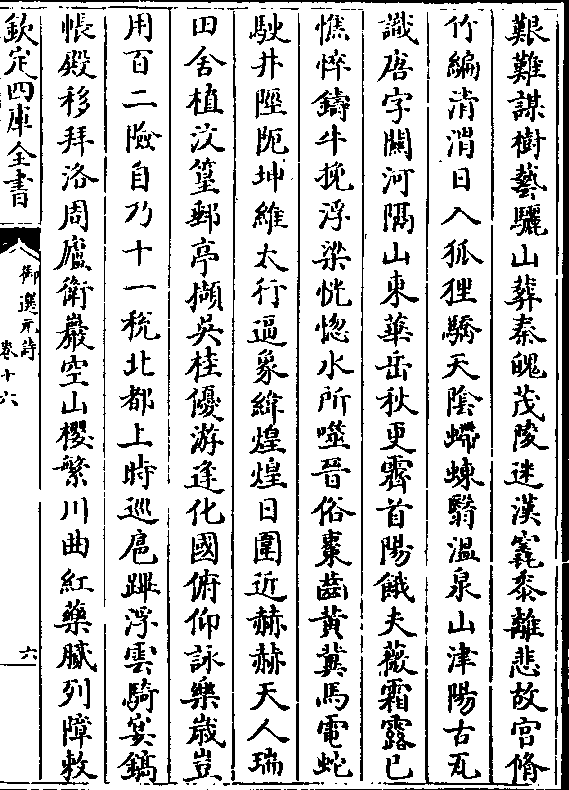 艱難謀樹藝驪山葬秦魄茂陵迷漢竁黍離悲故宫脩
竹編清渭日入狐狸驕天隂蝃蝀翳溫泉山津陽古瓦
識唐字闗河隔山東華岳秋更霽首陽餓夫薇霜露已
憔悴鑄牛挽浮梁恍惚水所噬晉俗棗齒黄冀馬電蛇
駛井陘阨坤維太行逼象緯煌煌日圍近赫赫天人瑞
田舍植汶篁郵亭擷吳桂優游逢化國俯仰詠樂嵗豈
用百二險自乃十一稅北都上時巡扈蹕浮雲騎奠鎬
帳殿移拜洛周廬衛巖空山櫻繁川曲紅藥膩列障敕
欽定四庫全書
御選元詩
卷十六
六